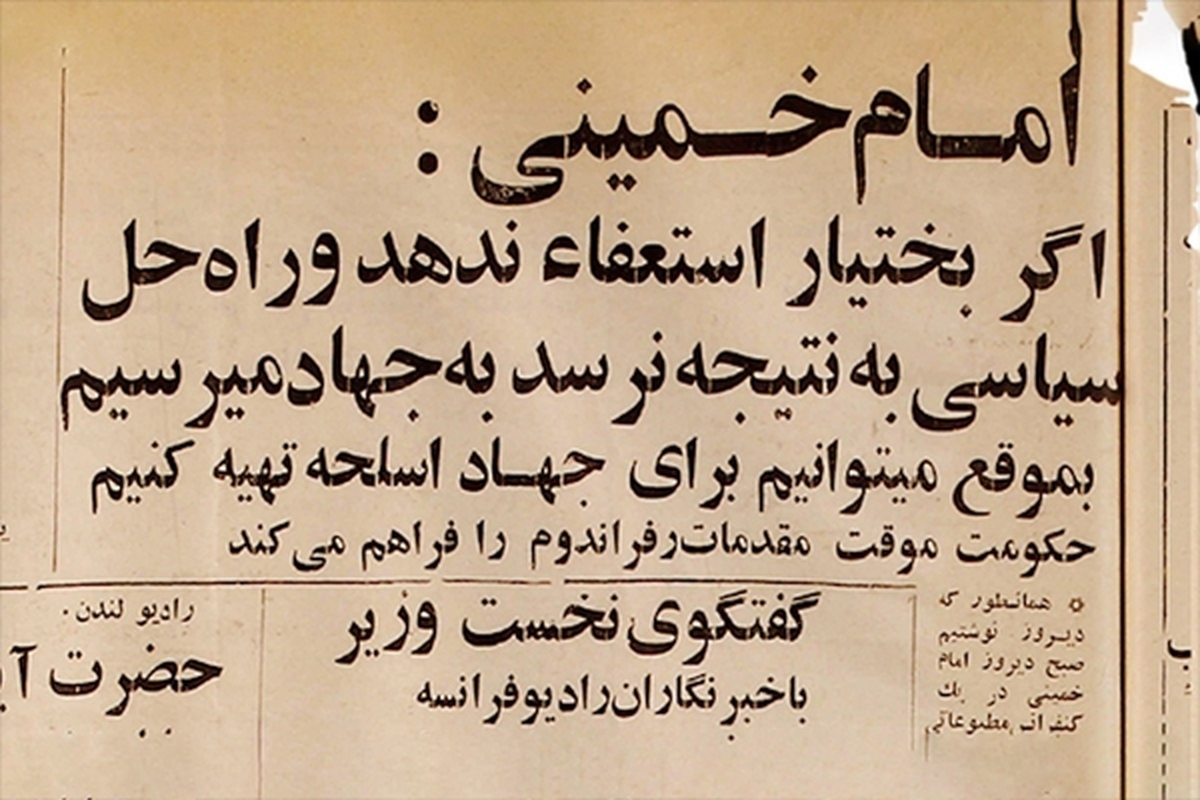 امام خمینی :
اگر بختیار استعفاء ندهد و راه حل
سیاسی به نتیجه نرسد به جهاد میرسیم
بموقع میتوانیم برای جهاد اسلحه تهیه کنیم
حکومت موقت مقدمات رفراندوم را فراهم می کند
همانطور که
دیروز نوشتیم
صبح دیروز امام
خمینی در یك
مطبوعاتی
گفتگوی نخست وزیر
با خبرنگاران رادیو فرانسه
رادیو لندن.
حضرت